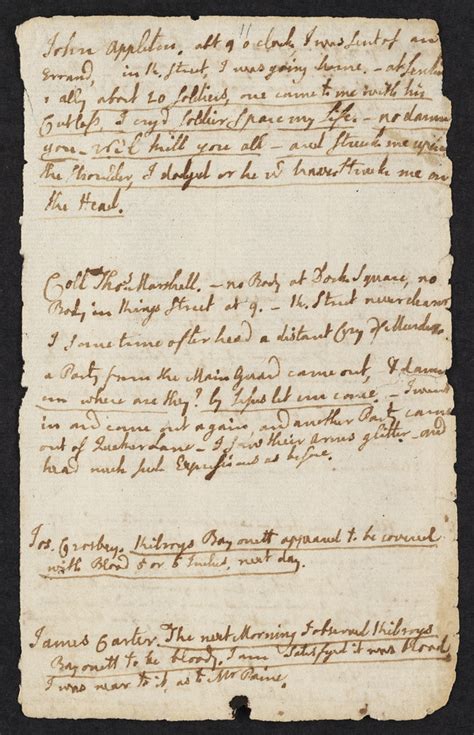 John Appleton. abt 9 o clock, I was sent of an
Errand, in K. Street, I was going home. – at
1 ally about 20 Soldiers, one came to me with his
Cutlass, I cryd Soldier Spare my Life. – no damn
you – we'll kill you all – and Struck me upon
the Shoulder, I dodged or he wd have Struck me on
the Head.
Coll Thos. Marshall. – no Body at Dock Square, no
Body in Kings Street at 9. – K. Street never clearer
I some time after heard a distant Cry of Murder.
a Party from the Main Guard came out, & damn
em where are they? by Jesus let em come. – I went
in and come out again, and another Party came
out of Quaker Lane – I saw their arms glitter – and
heard much such Expressions as before.
Jos. Crosbey. Kilroys Bayonett appeared to be covered
with Blood 5 or 6 Inches, next day.
James Carter. The next Morning I observed Kilroys
Bayonett to be bloody. I am Satisfyd it was blood
I was near to it, as to Mr Paine.